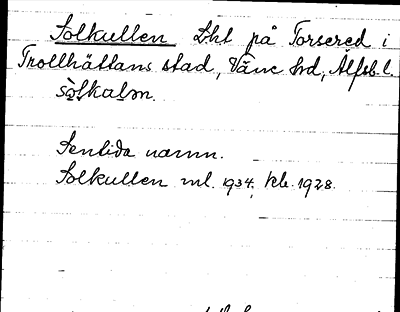 Solkullen Lht på Torsered i
Trollhättans stad, Väne hd, Älfsb. l.
sòlkalən.
Sentida namn.
Solkullen ml. 1934, kb. 1928.